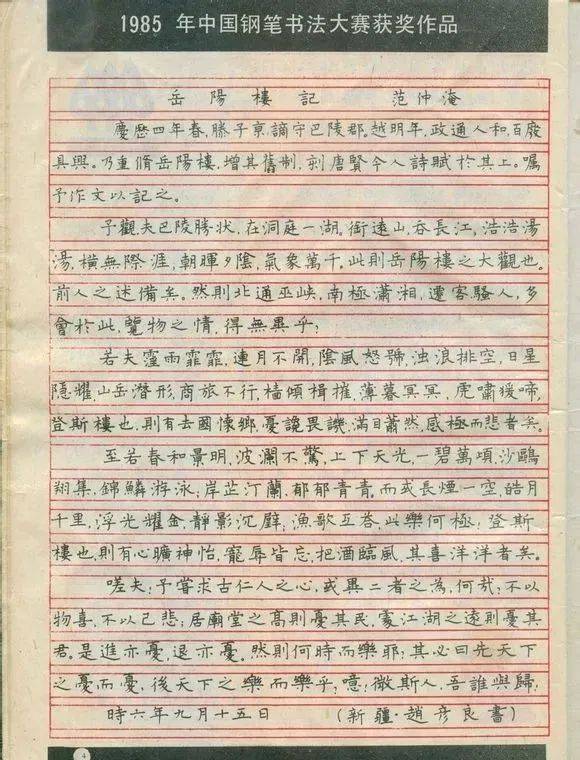 1985 年中国钢笔书法大赛获奖作品
岳陽樓記 范仲淹
慶歷四年春，滕子京謫守巴陵郡。越明年，政通人和，百廢
具興。乃重脩岳陽樓，增其舊制，刻唐賢今人詩賦於其上。囑
予作文以記之。
予觀夫巴陵勝狀，在洞庭一湖。銜遠山，吞長江，浩浩湯
湯，橫無際涯，朝暉夕陰，氣象萬千。此則岳陽樓之大觀也。
前人之述備矣。然則北通巫峽，南極瀟湘，遷客騷人，多
會於此，覽物之情，得無異乎；
若夫霪雨霏霏，連月不開，陰風怒號，浊浪排空，日星
隱耀，山岳潛形，商旅不行，檣傾楫摧，薄暮冥冥，虎嘯猨啼，
登斯樓也，則有去國懷鄉，憂讒畏譏，滿目蕭然，感極而悲者矣。
至若春和景明，波瀾不驚，上下天光，一碧萬頃，沙鷗
翔集，錦鱗游泳；岸芷汀蘭，郁郁青青。而或長煙一空，皓月
千里，浮光耀金，靜影沉壁；漁歌互荅，此樂何極；登斯
樓也，則有心曠神怡，寵辱皆忘；把酒臨風，其喜洋洋者矣。
嗟夫；予嘗求古仁人之心，或異二者之為，何哉；不以
物喜，不以己悲；居廟堂之高則憂其民，處江湖之遠則憂其
君。是進亦憂，退亦憂。然則何時而樂耶；其必曰先天下
之憂而憂，後天下之樂而樂乎；噫；微斯人，吾誰與歸；
時六年九月十五日 （新疆·趙彥良書）
4